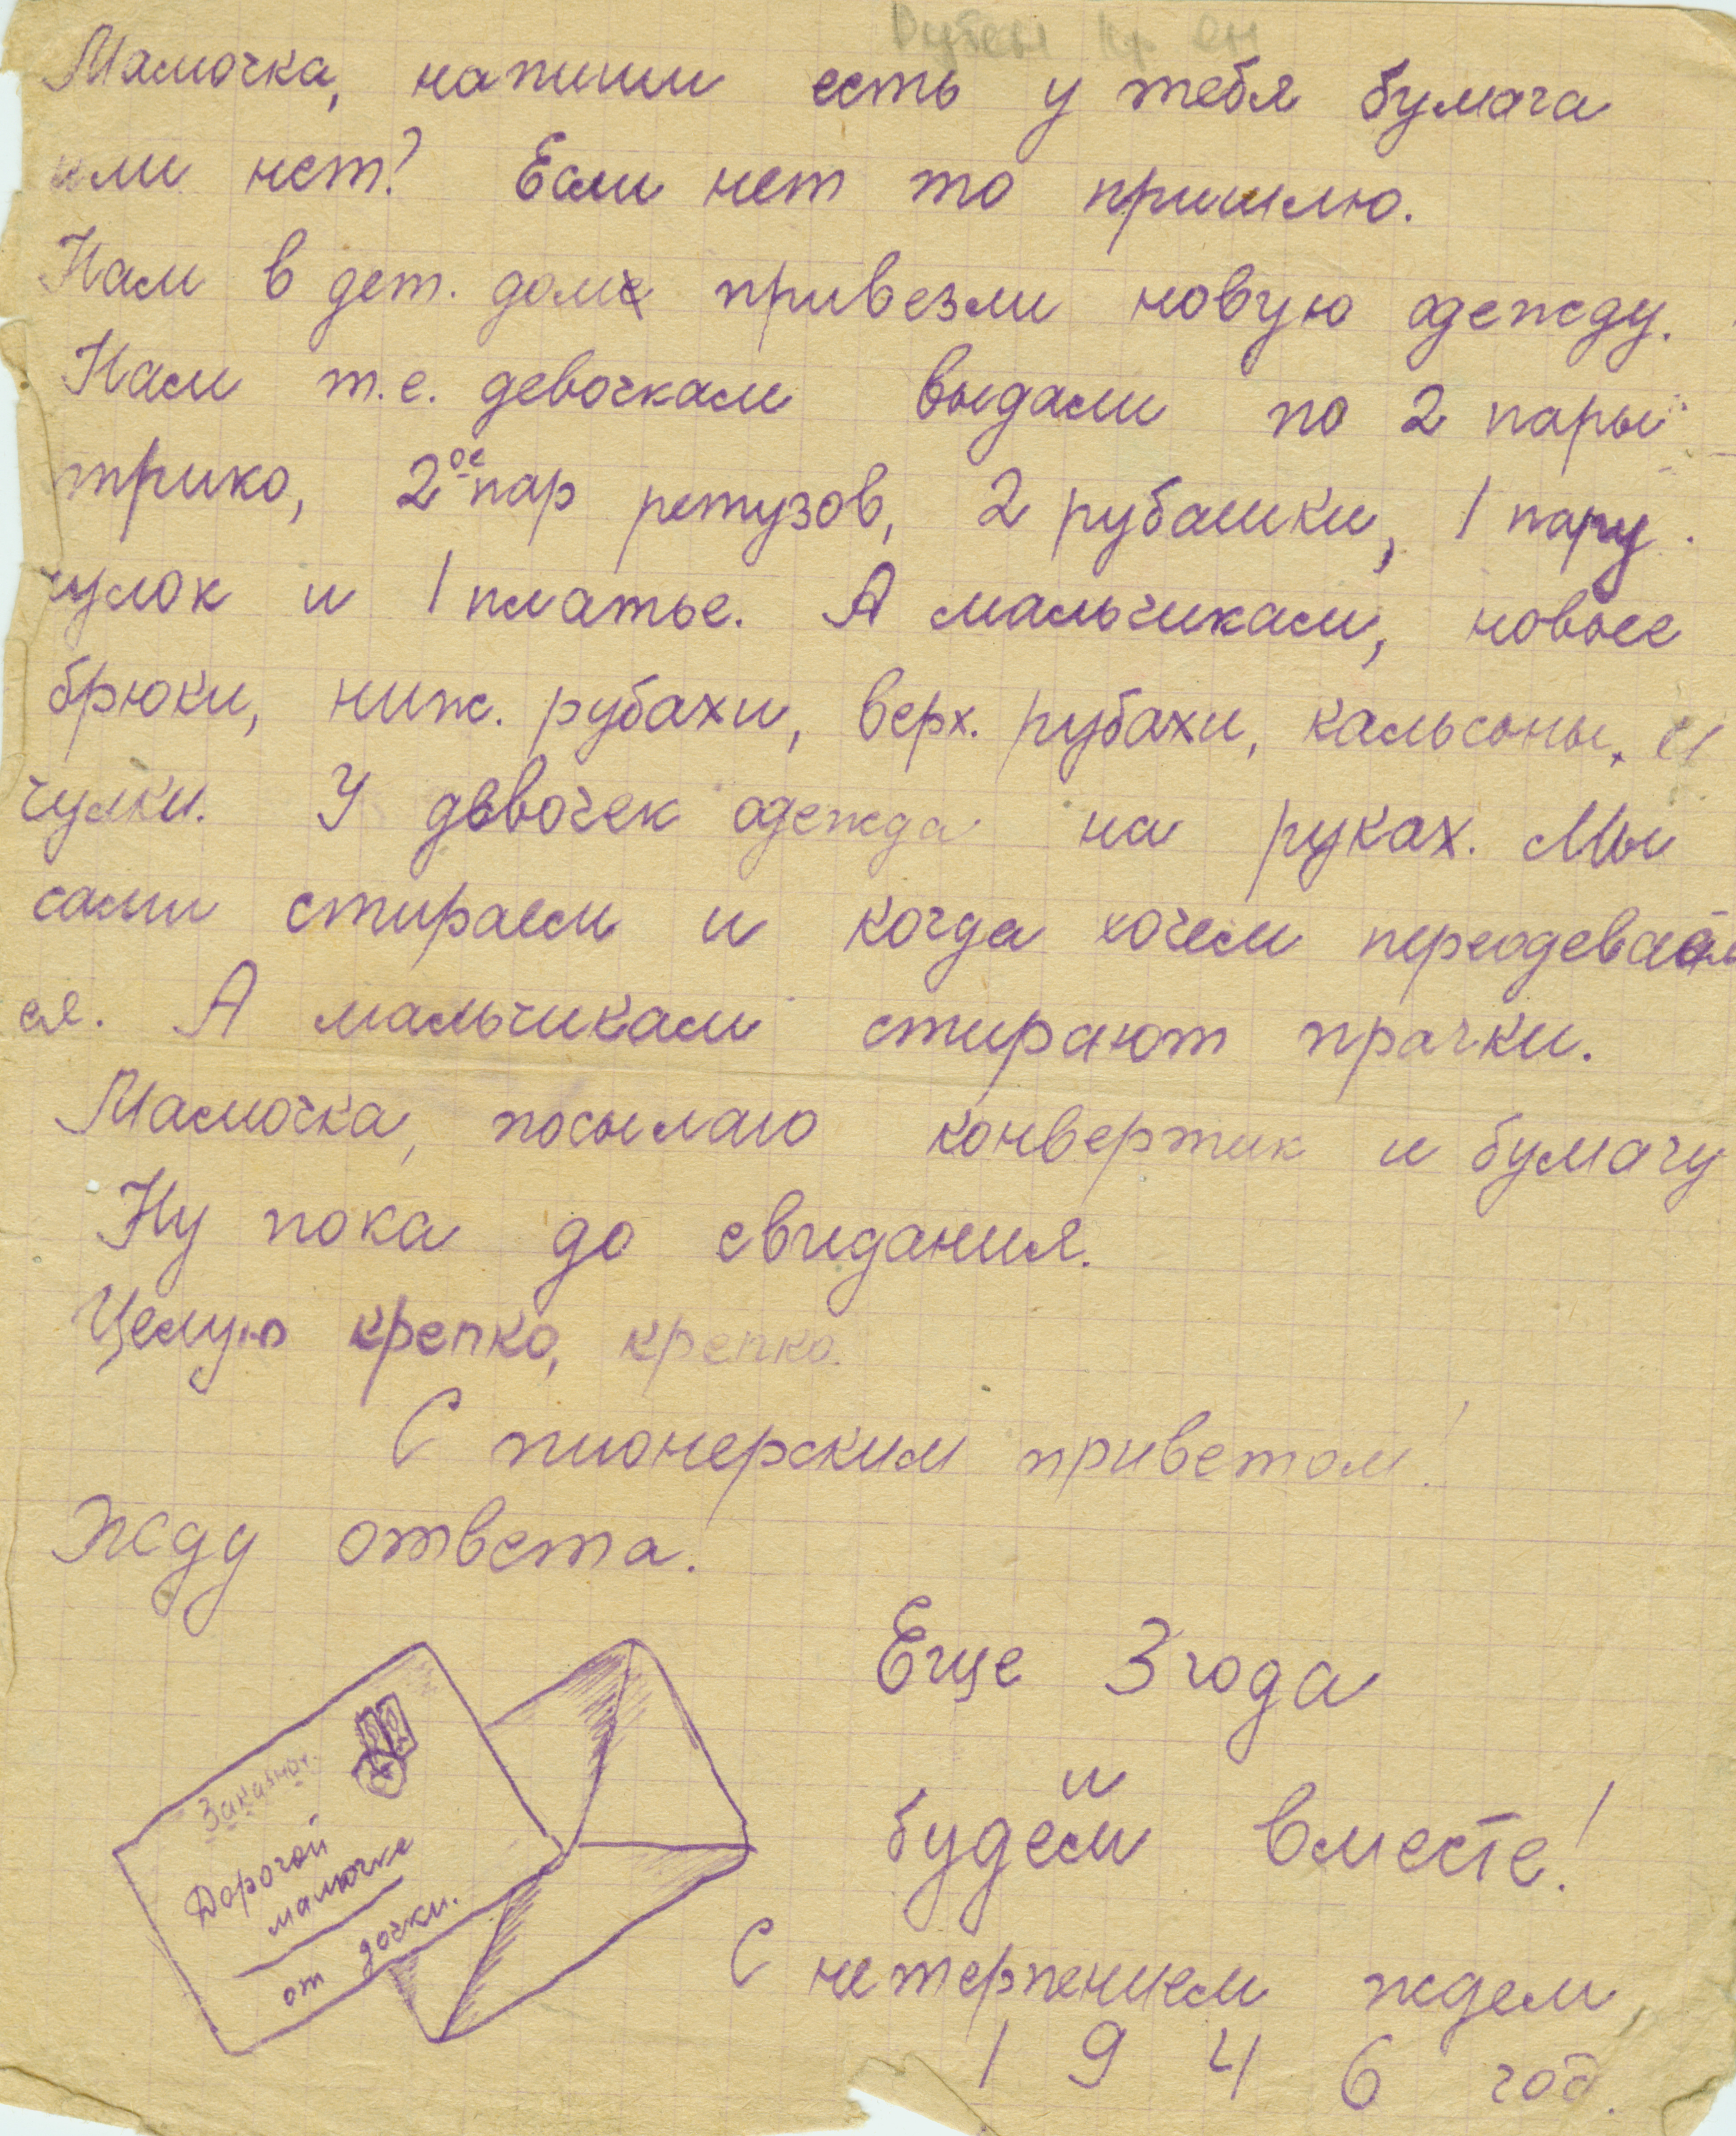 Мамочка, напиши есть у тебя бумага
или нет? Если нет то пришлю.
Нам в дет. дом привезли новую одежду.
Нам т.е. девочкам выдали по 2 пары
трико, 2ое пар ретузов, 2 рубашки, 1 пару
чулок и 1 платье. А мальчикам, новые
брюки, ниж. рубахи, верх. рубахи, кальсоны, и
чулки. У девочек одежда на руках. Мы
сами стираем и когда хочем переодеваем
ся. А мальчикам стирают прачки.
Мамочка, посылаю конвертик и бумагу
Ну пока до свидания.
Целую крепко, крепко.
С пионерским приветом!
Жду ответа.
Еще 3 года
и
будем вместе!
С нетерпением ждем
1946 год.
Заказное.
Дорогой
мамочке
от дочки.